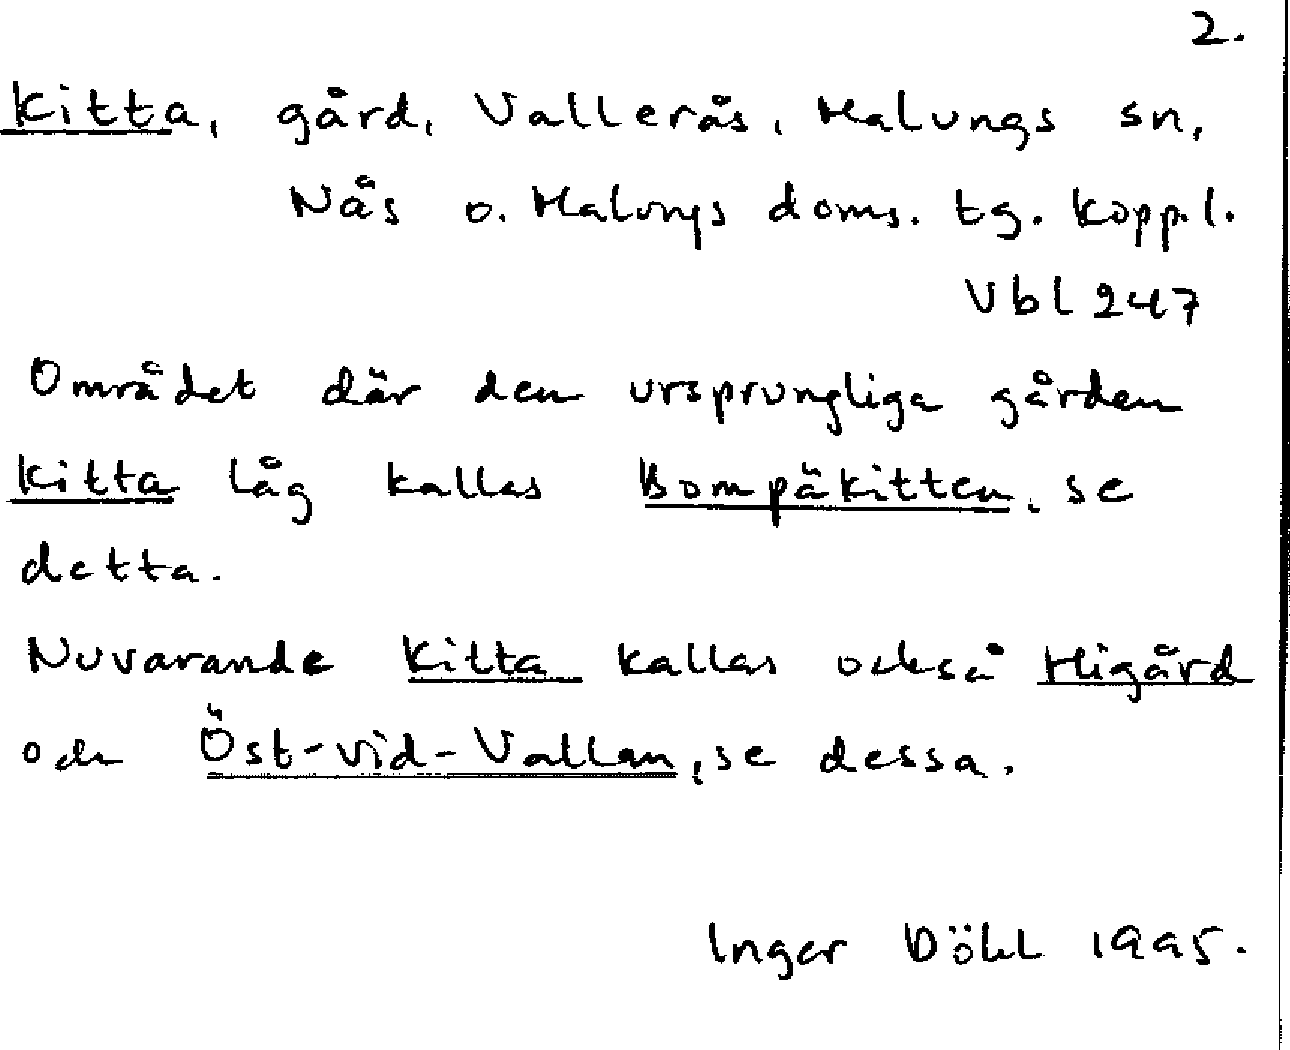 2.
Kitta, gård, Vallerås, Malungs sn,
Näs o. Malungs doms. tg. Kopp.l.
Vbl 247
Området där den ursprungliga gården
Kitta låg kallas Bompäkitten, se
detta.
Nuvarande Kitta kallas också Migård
och Öst-vid-Vallan, se dessa.
Inger Döhl 1995.